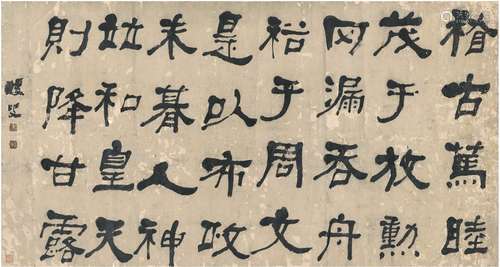 稽古篤睦
茂于放勳
网漏吞舟
裕于周文
是以布政
未朞人神
竝和皇天
則降甘露